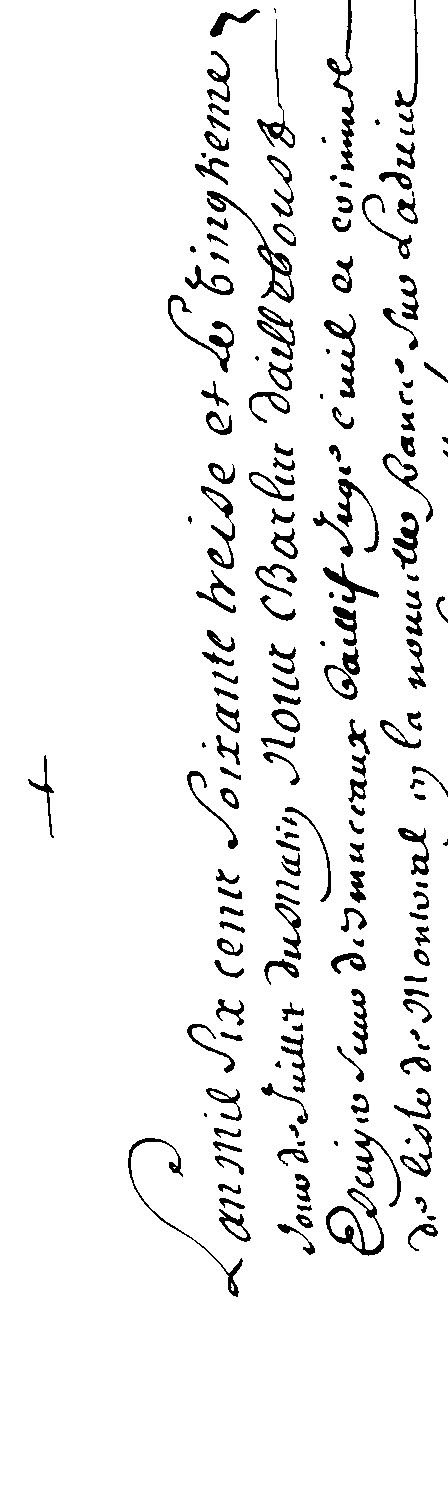 Lan mil Six cent Soixante treise et Le Vingtieme
Jour de Juillet du Matin Nous Charles dailleboust
Escuyer Sieur desmusceaux Baillif Juge Civil et criminel
de lisle de Montreal en la nouvelle france Sur Ladvis